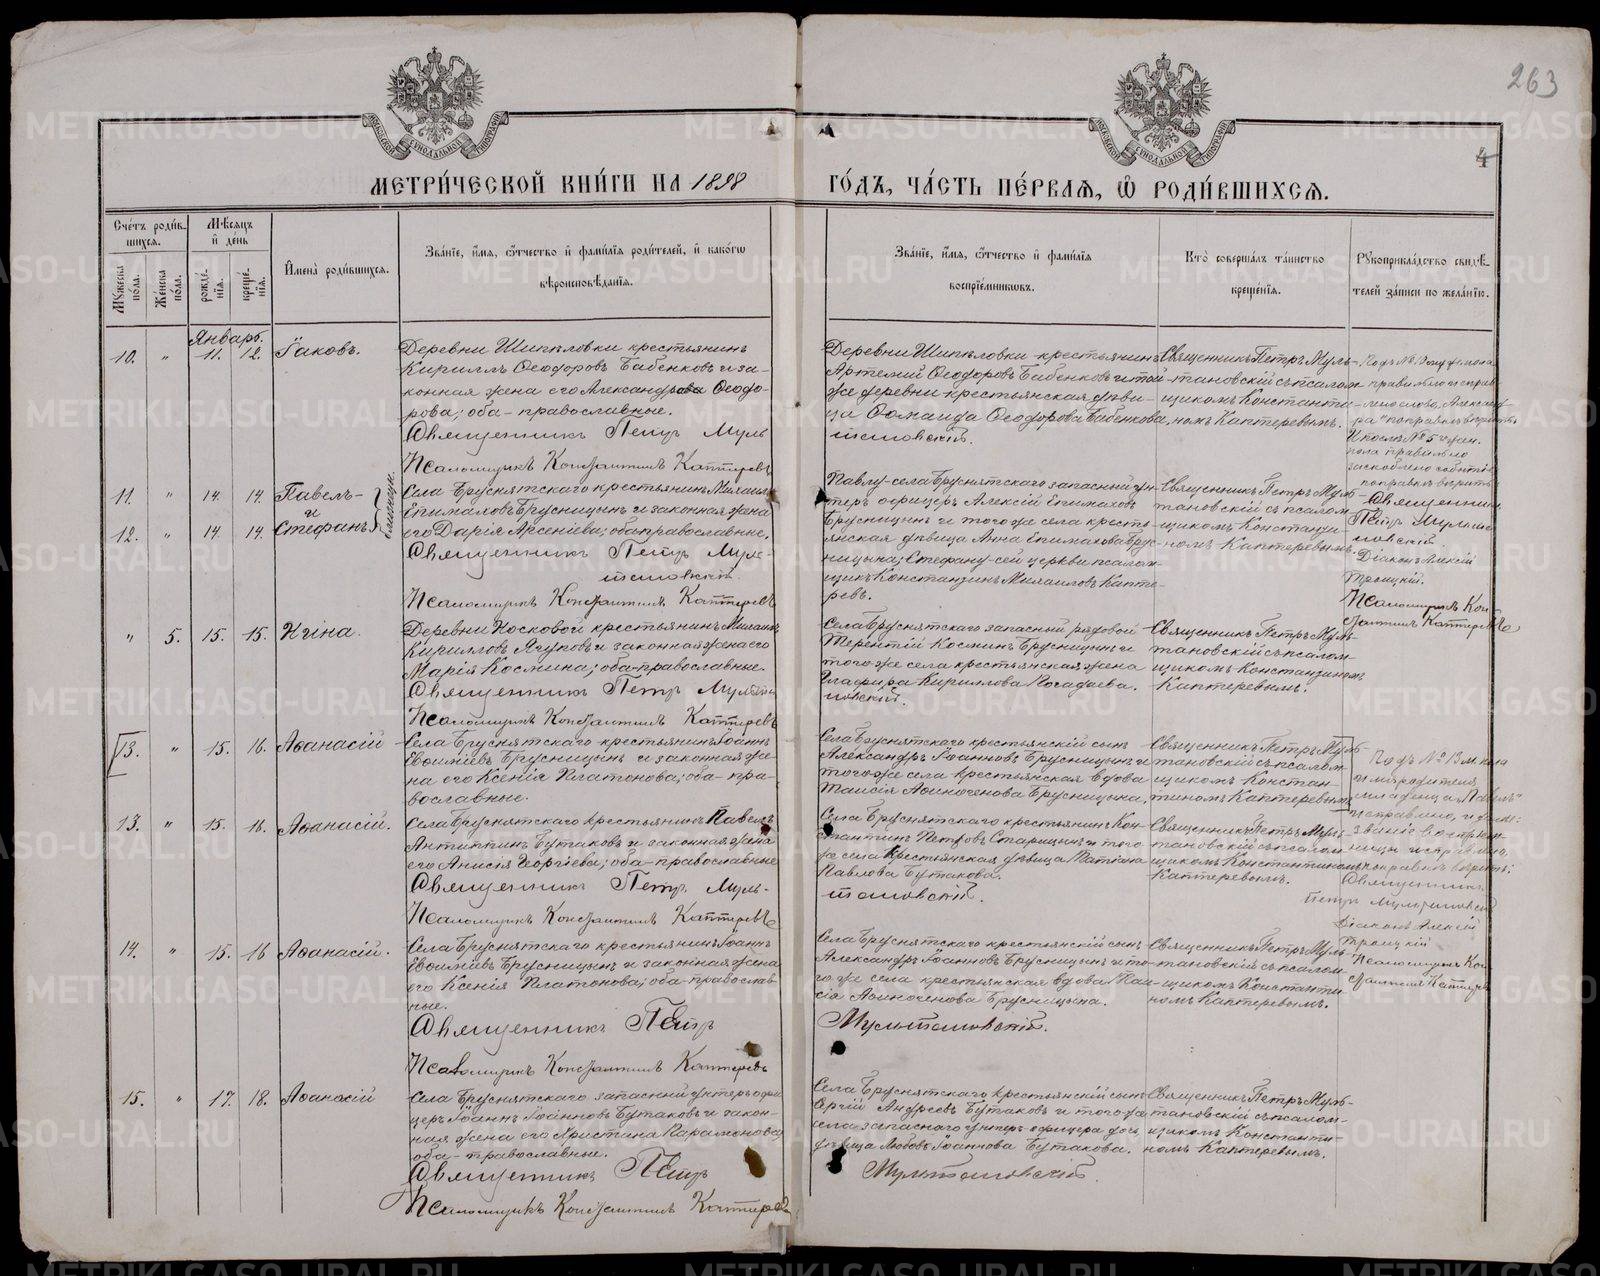 263
4
МЕТРИ́ЧЕСКОЙ КНИ́ГИ НА 1898
ГО́ДЪ, ЧА́СТЬ ПЕ́РВАѦ, Ѿ РОДИ́ВШИХСѦ.
Сче́тъ роди́в-
шихсѧ.
Мѣ́сѧцъ
и҆ де́нь
Мꙋ́жеска по́ла.
Же́нска по́ла.
рожде́-
нїѧ.
креще́-
нїѧ.
И҆мена̀ роди́вшихсѧ.
Зва́нїе, и҆́мѧ, ѻ҆́тчество и҆ фами́лїѧ роди́телей, и҆ како́гѡ
вѣроисповѣ́данїѧ.
Зва́нїе, и҆́мѧ, ѻ҆́тчество и҆ фами́лїѧ
воспрїе́мникѡвъ.
Кто̀ соверша́лъ та́инство
креще́нїѧ.
Рꙋкоприкла́дство свидѣ́-
телей за́писи по жела́нїю.
Январь.
10. " 11. 12. Іаковъ.
Деревни Шипѣловки крестьянинъ
Кириллъ Ѳеодоровъ Бабенковъ и за-
конная жена его Александра Ѳеодо-
рова; оба-православные.
Священникъ Петръ Муль
Псаломщикъ Константинъ Каптеревъ
Деревни Шипѣловки крестьянинъ
Артемій Ѳеодоровъ Бабенковъ и той-
же деревни крестьянская дѣви-
ца Ѳомаида Ѳеодорова Бабенкова,
тановскій.
Священникъ Петръ Муль-
тановскій съ псалом-
щикомъ Константи-
номъ Каптеревымъ.
11. " 14. 14. Павелъ-
и
12. " 14. 14. Стефанъ
близнецы.
Села Бруснятскаго крестьянинъ Михаилъ
Епимаховъ Брусницынъ и законная жена
его Дарія Арсеніева; оба православные.
Священникъ Петръ Муль-
тановскій.
Псаломщикъ Константинъ Каптеревъ
Павлу-села Бруснятскаго запасный ун-
теръ офицеръ Алексій Епимаховъ
Брусницынъ и того же села кресть-
янская дѣвица Анна Епимахова Брус-
ницына; Стефану-сей церкви псалом-
щикъ Константинъ Михаиловъ Капте-
ревъ.
Священникъ Петръ Муль-
тановскій съ псалом-
щикомъ Константи-
номъ Каптеревымъ.
Священникъ
Петръ Мульта-
новскій
Діаконъ Алексій
Троицкій.
Псаломщикъ Кон-
стантинъ Каптеревъ
" 5. 15. 15. Нина.
Деревни Косковой крестьянинъ Михаилъ
Кирилловъ Ягуповъ и законная жена его
Марія Космина; оба-православные.
Священникъ Петръ Мульта
Псаломщикъ Константинъ Каптеревъ
Села Бруснятскаго запасный рядовой
Терентій Косминъ Брусницынъ и
того же села крестьянская жена
Глафира Кириллова Посадаева.
новскій.
Священникъ Петръ Муль-
тановскій съ псалом-
щикомъ Константиномъ
Каптеревымъ.
13. " 15. 16. Аѳанасій
Села Бруснятскаго крестьянинъ Іоаннъ
Евѳиміевъ Брусницынъ и законная же-
на его Ксенія Платонова; оба-пра-
вославные.
Села Бруснятскаго крестьянскій сынъ
Александръ Іоанновъ Брусницынъ и
того же села крестьянская вдова
Таисія Аѳиногенова Брусницына.
Священникъ Петръ Муль-
тановскій съ псалом-
щикомъ Констан-
тиномъ Каптеревымъ
13. " 15. 16. Аѳанасій.
Села Бруснятскаго крестьянинъ Павелъ
Антиппинъ Бутаковъ и законная жена
его Анисія Георгіева; оба-православные
Священникъ Петръ Муль-
Псаломщикъ Константинъ Каптеревъ
Села Бруснятскаго крестьянинъ Кон-
стантинъ Петровъ Старицынъ и того
же села крестьянская дѣвица Татіана
Павлова Бутакова.
тановскій.
Священникъ Петръ Муль-
тановскій съ псалом-
щикомъ Константиномъ
Каптеревымъ.
Священникъ
Петръ Мультановскій
Діаконъ Алексій
Троицкій
Псаломщикъ Кон-
стантинъ Каптеревъ
14. " 15. 16 Аѳанасій.
Села Бруснятскаго крестьянинъ Іоаннъ
Евѳиміевъ Брусницынъ и законная жена
его Ксенія Платонова; оба-православ-
ные.
Священникъ Петръ
Псаломщикъ Константинъ Каптеревъ
Села Бруснятскаго крестьянскій сынъ
Александръ Іоанновъ Брусницынъ и то-
го же села крестьянская вдова Таи-
сія Аѳиногенова Брусницына.
Мультановскій.
Священникъ Петръ Муль-
тановскій съ псалом-
щикомъ Константи-
номъ Каптеревымъ.
15. " 17. 18. Аѳанасій
Села Бруснятскаго запасный унтеръ офи-
церъ Іоаннъ Іоанновъ Бутаковъ и закон-
ная жена его Христина Парамонова;
оба-православные.
Священникъ Петръ
Псаломщикъ Константинъ Каптеревъ
Села Бруснятскаго крестьянскій сынъ
Сергій Андреевъ Бутаковъ и того же
села запасного унтеръ-офицера дочь
дѣвица Любовь Іоаннова Бутакова.
Мультановскій.
Священникъ Петръ Муль-
тановскій съ псалом-
щикомъ Константи-
номъ Каптеревымъ.
METRIKI.GASO-URAL.RU